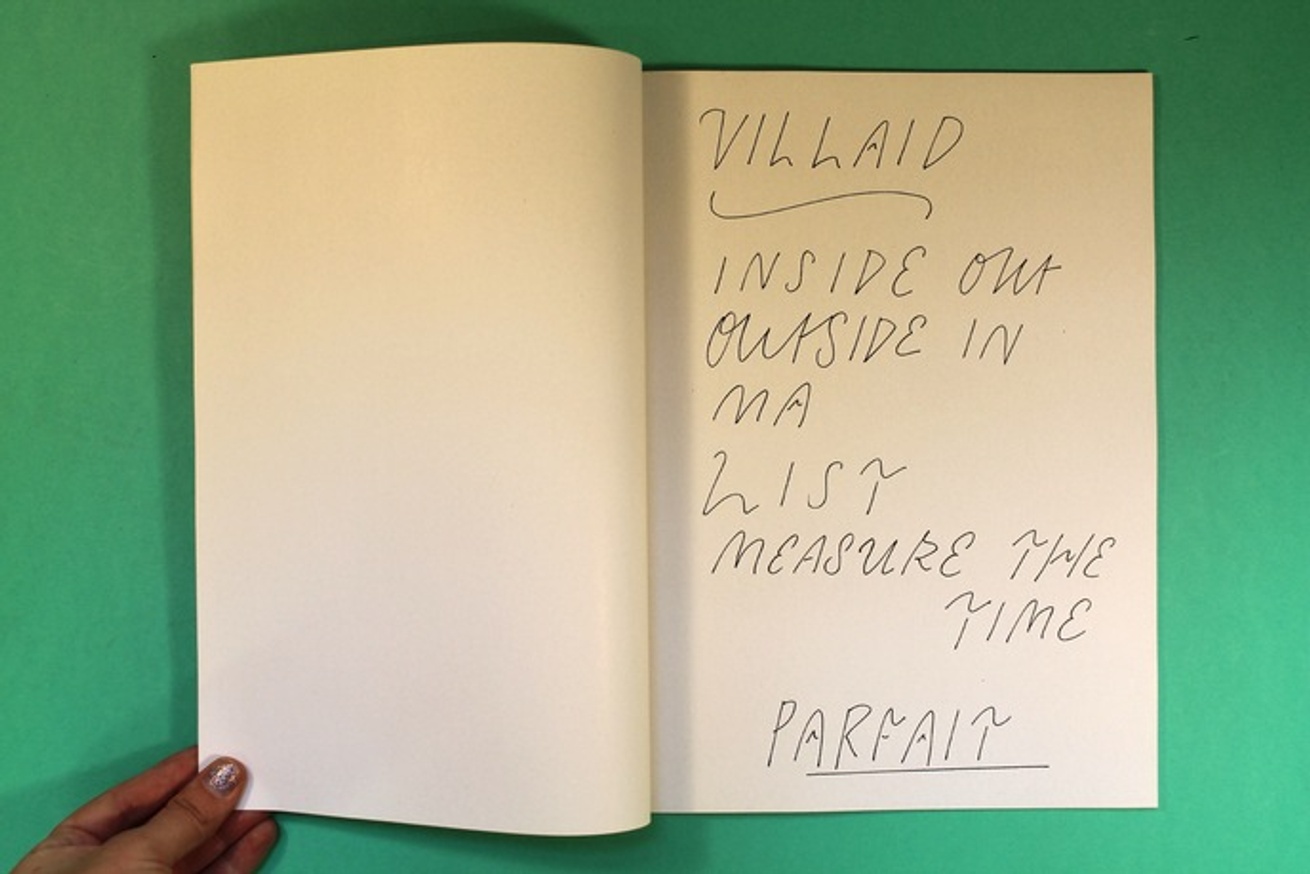 VILLAID
INSIDE OUT
OUTSIDE IN
MA
LIST
MEASURE THE
TIME
PARFAIT